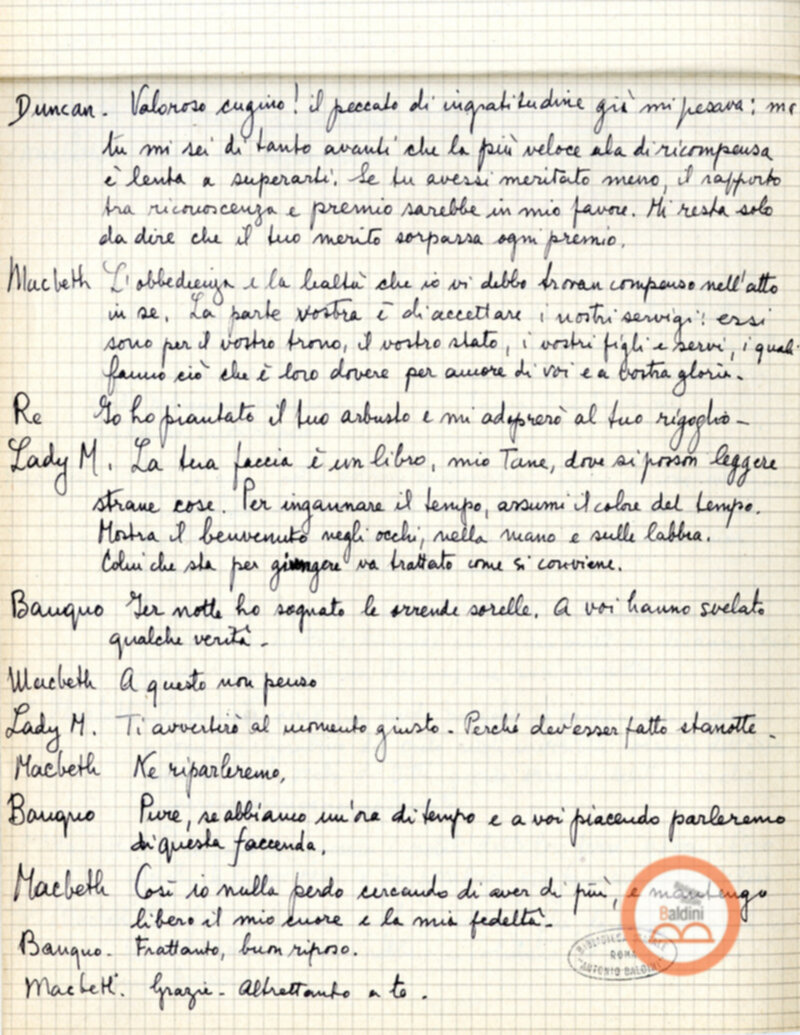 Duncan. Valoroso cugino! il peccato di ingratitudine già mi pesava: ma
tu mi sei di tanto avanti che la più veloce ala di ricompensa
è lenta a superarti. Se tu avessi meritato meno, il rapporto
tra riconoscenza e premio sarebbe in mio favore. Mi resta solo
da dire che il tuo merito sorpassa ogni premio.
Macbeth L'obbedienza e la lealtà che io vi debbo trovan compenso nell'atto
in se. La parte vostra è di accettare i nostri servigi: essi
sono per il vostro trono, il vostro stato, i vostri figli e servi, i quali
fanno ciò che è loro dovere per amore di voi e a vostra gloria.
Re Io ho piantato il tuo arbusto e mi adoprerò al tuo rigoglio -
Lady M. La tua faccia è un libro, mio Tane, dove si posson leggere
strane cose. Per ingannare il tempo, assumi il colore del tempo.
Mostra il benvenuto negli occhi, nella mano e sulle labbra.
Colui che sta per giungere va trattato come si conviene.
Banquo Ier notte ho sognato le orrende sorelle. A voi hanno svelato
qualche verità -
Macbeth A questo non penso
Lady M. Ti avvertirò al momento giusto - Perché dev'esser fatto stanotte -
Macbeth Ne riparleremo,
Banquo Pure, se abbiamo un'ora di tempo e a voi piacendo parleremo
di questa faccenda.
Macbeth Così io nulla perdo cercando di aver di più, e mantengo
libero il mio cuore e la mia fedeltà -
Banquo - Frattanto, buon riposo.
Macbeth. Grazie - Altrettanto a te.
Baldini
B
ROMA
"ANTONIO BALDINI"